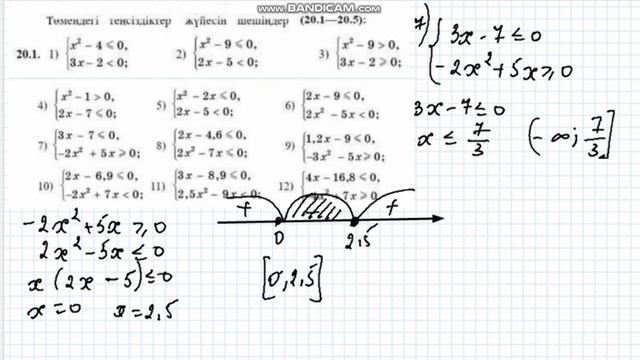 WWW.BANDICAM.COM
Төмендегі теңсіздіктер жүйесін шешіңдер (20.1—20.5):
20.1. 1) {x² − 4 ⩽ 0, 3x − 2 < 0; 2) {x² − 9 ⩽ 0, 2x − 5 < 0; 3) {x² − 9 > 0, 3x − 2 ⩾ 0;
4) {x² − 1 > 0, 2x − 7 ⩽ 0; 5) {x² − 2x ⩽ 0, 2x − 5 < 0; 6) {2x − 9 ⩽ 0, 2x² − 5x < 0;
7) {3x − 7 ⩽ 0, −2x² + 5x ⩾ 0; 8) {2x − 4,6 ⩽ 0, 2x² − 7x ⩽ 0; 9) {1,2x − 9 ⩽ 0, −3x² − 5x ⩾ 0;
10) {2x − 6,9 ⩽ 0, −2x² + 7x < 0; 11) {3x − 8,9 ⩽ 0, 2,5x² − 9x < 0; 12) {4x − 16,8 ⩽ 0, + 7x ⩾ 0
7) {3x − 7 ≤ 0
−2x² + 5x ≥ 0
3x − 7 ≤ 0
x ≤ 7/3 (−∞; 7/3]
−2x² + 5x ≥ 0
2x² − 5x ≤ 0
x (2x − 5) ≤ 0
x = 0 x = 2,5
+ +
0 2,5
[0, 2,5]